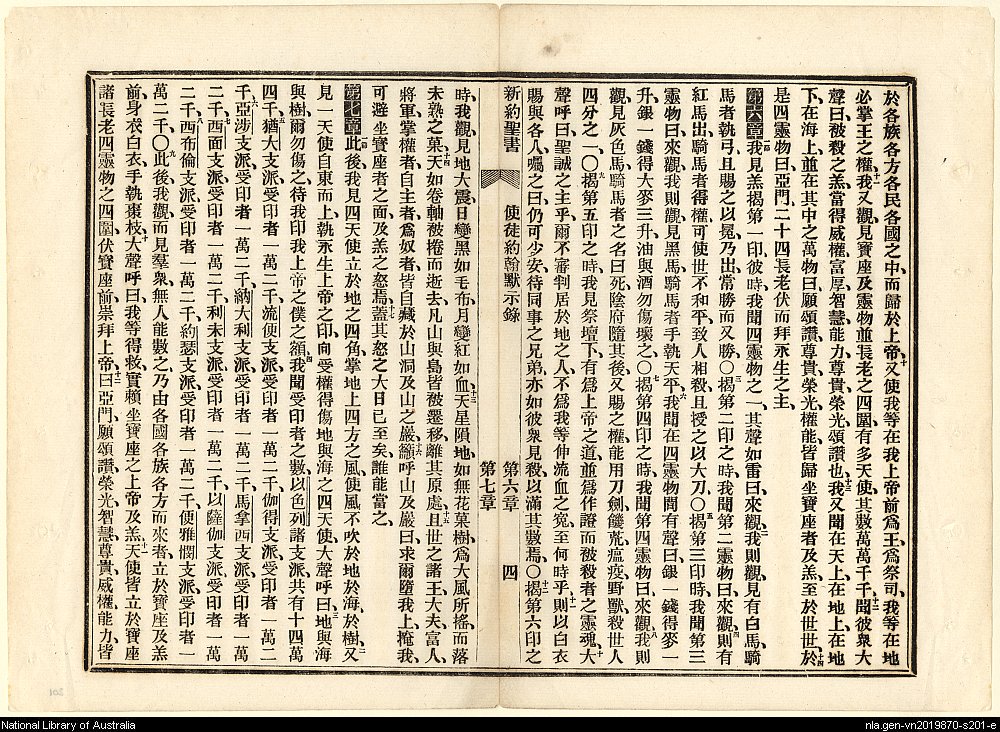 於各族各方各民各國之中、而歸於上帝、十又使我等在我上帝前爲王、爲祭司、我等在地
必掌王之權、十一我又觀見寶座及靈物並長老之四圍、有多天使、其數萬萬千千、十二聞彼衆大
聲曰、被殺之羔、當得威權富厚智慧能力尊貴榮光頌讚也、十三我又聞在天上、在地上、在地
下、在海上、並在其中之萬物、曰、願頌讚、尊貴榮光權能、皆歸坐寶座者及羔、至於世世、十四於
是四靈物曰、亞門、二十四長老伏而拜永生之主、
第六章 一我見羔揭第一印、彼時我聞四靈物之一、其聲如雷曰、來觀、二我則觀、見有白馬、騎
馬者執弓、且賜之以冕、乃出、常勝而又勝、〇三揭第二印之時、我聞第二靈物曰、來觀、四則有
紅馬出、騎馬者得權、可使世不和平、致人相殺、且授之以大刀、〇五揭第三印時、我聞第三
靈物曰、來觀、我則觀見黑馬、騎馬者手執天平、六我聞在四靈物間有聲曰、銀一錢得麥一
升、銀一錢得大麥三升、油與酒勿傷壞之、〇七揭第四印之時、我聞第四靈物曰、來觀、八我則
觀見灰色馬、騎馬者之名曰死、陰府隨其後、又賜之權、能用刀劍饑荒瘟疫野獸、殺世人
四分之一、〇九揭第五印之時、我見祭壇下、有爲上帝之道、並爲作證而被殺者之靈魂、十大
聲呼曰、聖誠之主乎、爾不審判居於地之人、不爲我等伸流血之寃、至何時乎、十一則以白衣
賜與各人、囑之曰、仍可少安、待同事之兄弟、亦如彼衆見殺、以滿其數焉、〇十二揭第六印之
新約聖書 使徒約翰默示錄 第六章 第七章 四
時、我觀見地大震、日變黑如毛布、月變紅如血、十三天星隕地、如無花菓樹爲大風所搖、而落
未熟之菓、十四天如卷軸、被捲而逝去、凡山與島皆被遷移離其原處、十五且世之諸王、大夫、富人、
將軍、掌權者、自主者、爲奴者、皆自藏於山洞及山之巖巓、十六呼山及巖曰、求爾墮我上、掩我、
可避坐寶座者之面、及羔之怒焉、十七蓋其怒之大日已至矣、誰能當之、
第七章 一此後、我見四天使立於地之四角、掌地上四方之風、使風不吹於地於海於樹、二又
見一天使、自東而上、執永生上帝之印、向受權得傷地與海之四天使、大聲呼曰、三地與海
與樹、爾勿傷之、待我印我上帝之僕之額、四我聞受印者之數、以色列諸支派共有十四萬
四千、五猶大支派受印者一萬二千、流便支派受印者一萬二千、伽得支派受印者一萬二
千、六亞涉支派受印者一萬二千、納大利支派受印者一萬二千、馬拿西支派受印者一萬
二千、七西面支派受印者一萬二千、利未支派受印者一萬二千、以薩伽支派受印者一萬
二千、八西布倫支派受印者一萬二千、約瑟支派受印者一萬二千、便雅憫支派受印者一
萬二千、〇九此後、我觀而見羣衆、無人能數之、乃由各國各族各方而來者、立於寶座及羔
前、身衣白衣、手執棗枝、十大聲呼曰、我等得救、實賴坐寶座之上帝及羔、十一天使皆立於寶座
諸長老四靈物之四圍、伏寶座前、崇拜上帝、十二曰、亞門、願頌讚、榮光、智慧、尊貴、威權、能力、皆
National Library of Australia
nla.gen-vn2019870-s201-e